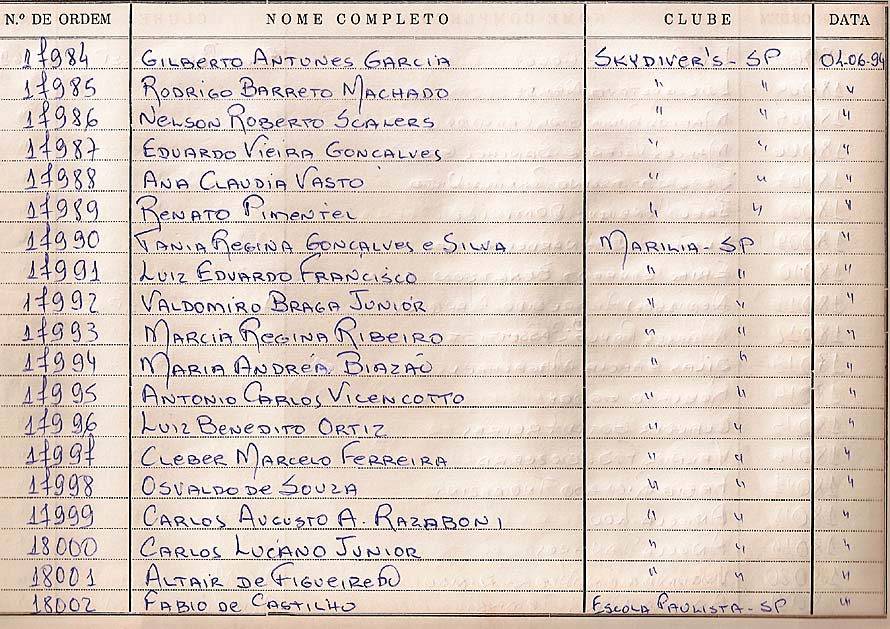 N.º DE ORDEM NOME COMPLETO CLUBE DATA
17984 GILBERTO ANTUNES GARCIA SKYDIVER'S - SP 04.06.94
17985 RODRIGO BARRETO MACHADO " " "
17986 NELSON ROBERTO SCALERS " " "
17987 EDUARDO VIEIRA GONCALVES " " "
17988 ANA CLAUDIA VASTO " " "
17989 RENATO PIMENTEL " " "
17990 TANIA REGINA GONÇALVES e SILVA MARILIA - SP "
17991 LUIZ EDUARDO FRANCISCO " " "
17992 VALDOMIRO BRAGA JUNIOR " " "
17993 MARCIA REGINA RIBEIRO " " "
17994 MARIA ANDRÉA BIAZÃO " " "
17995 ANTONIO CARLOS VICENCOTTO " " "
17996 LUIZ BENEDITO ORTIZ " " "
17997 CLEBER MARCELO FERREIRA " " "
17998 OSVALDO DE SOUZA " " "
17999 CARLOS AUGUSTO A. RAZABONI " " "
18000 CARLOS LUCIANO JUNIOR " " "
18001 ALTAIR DE FIGUEIREDO " " "
18002 FABIO DE CASTILHO ESCOLA PAULISTA - SP "